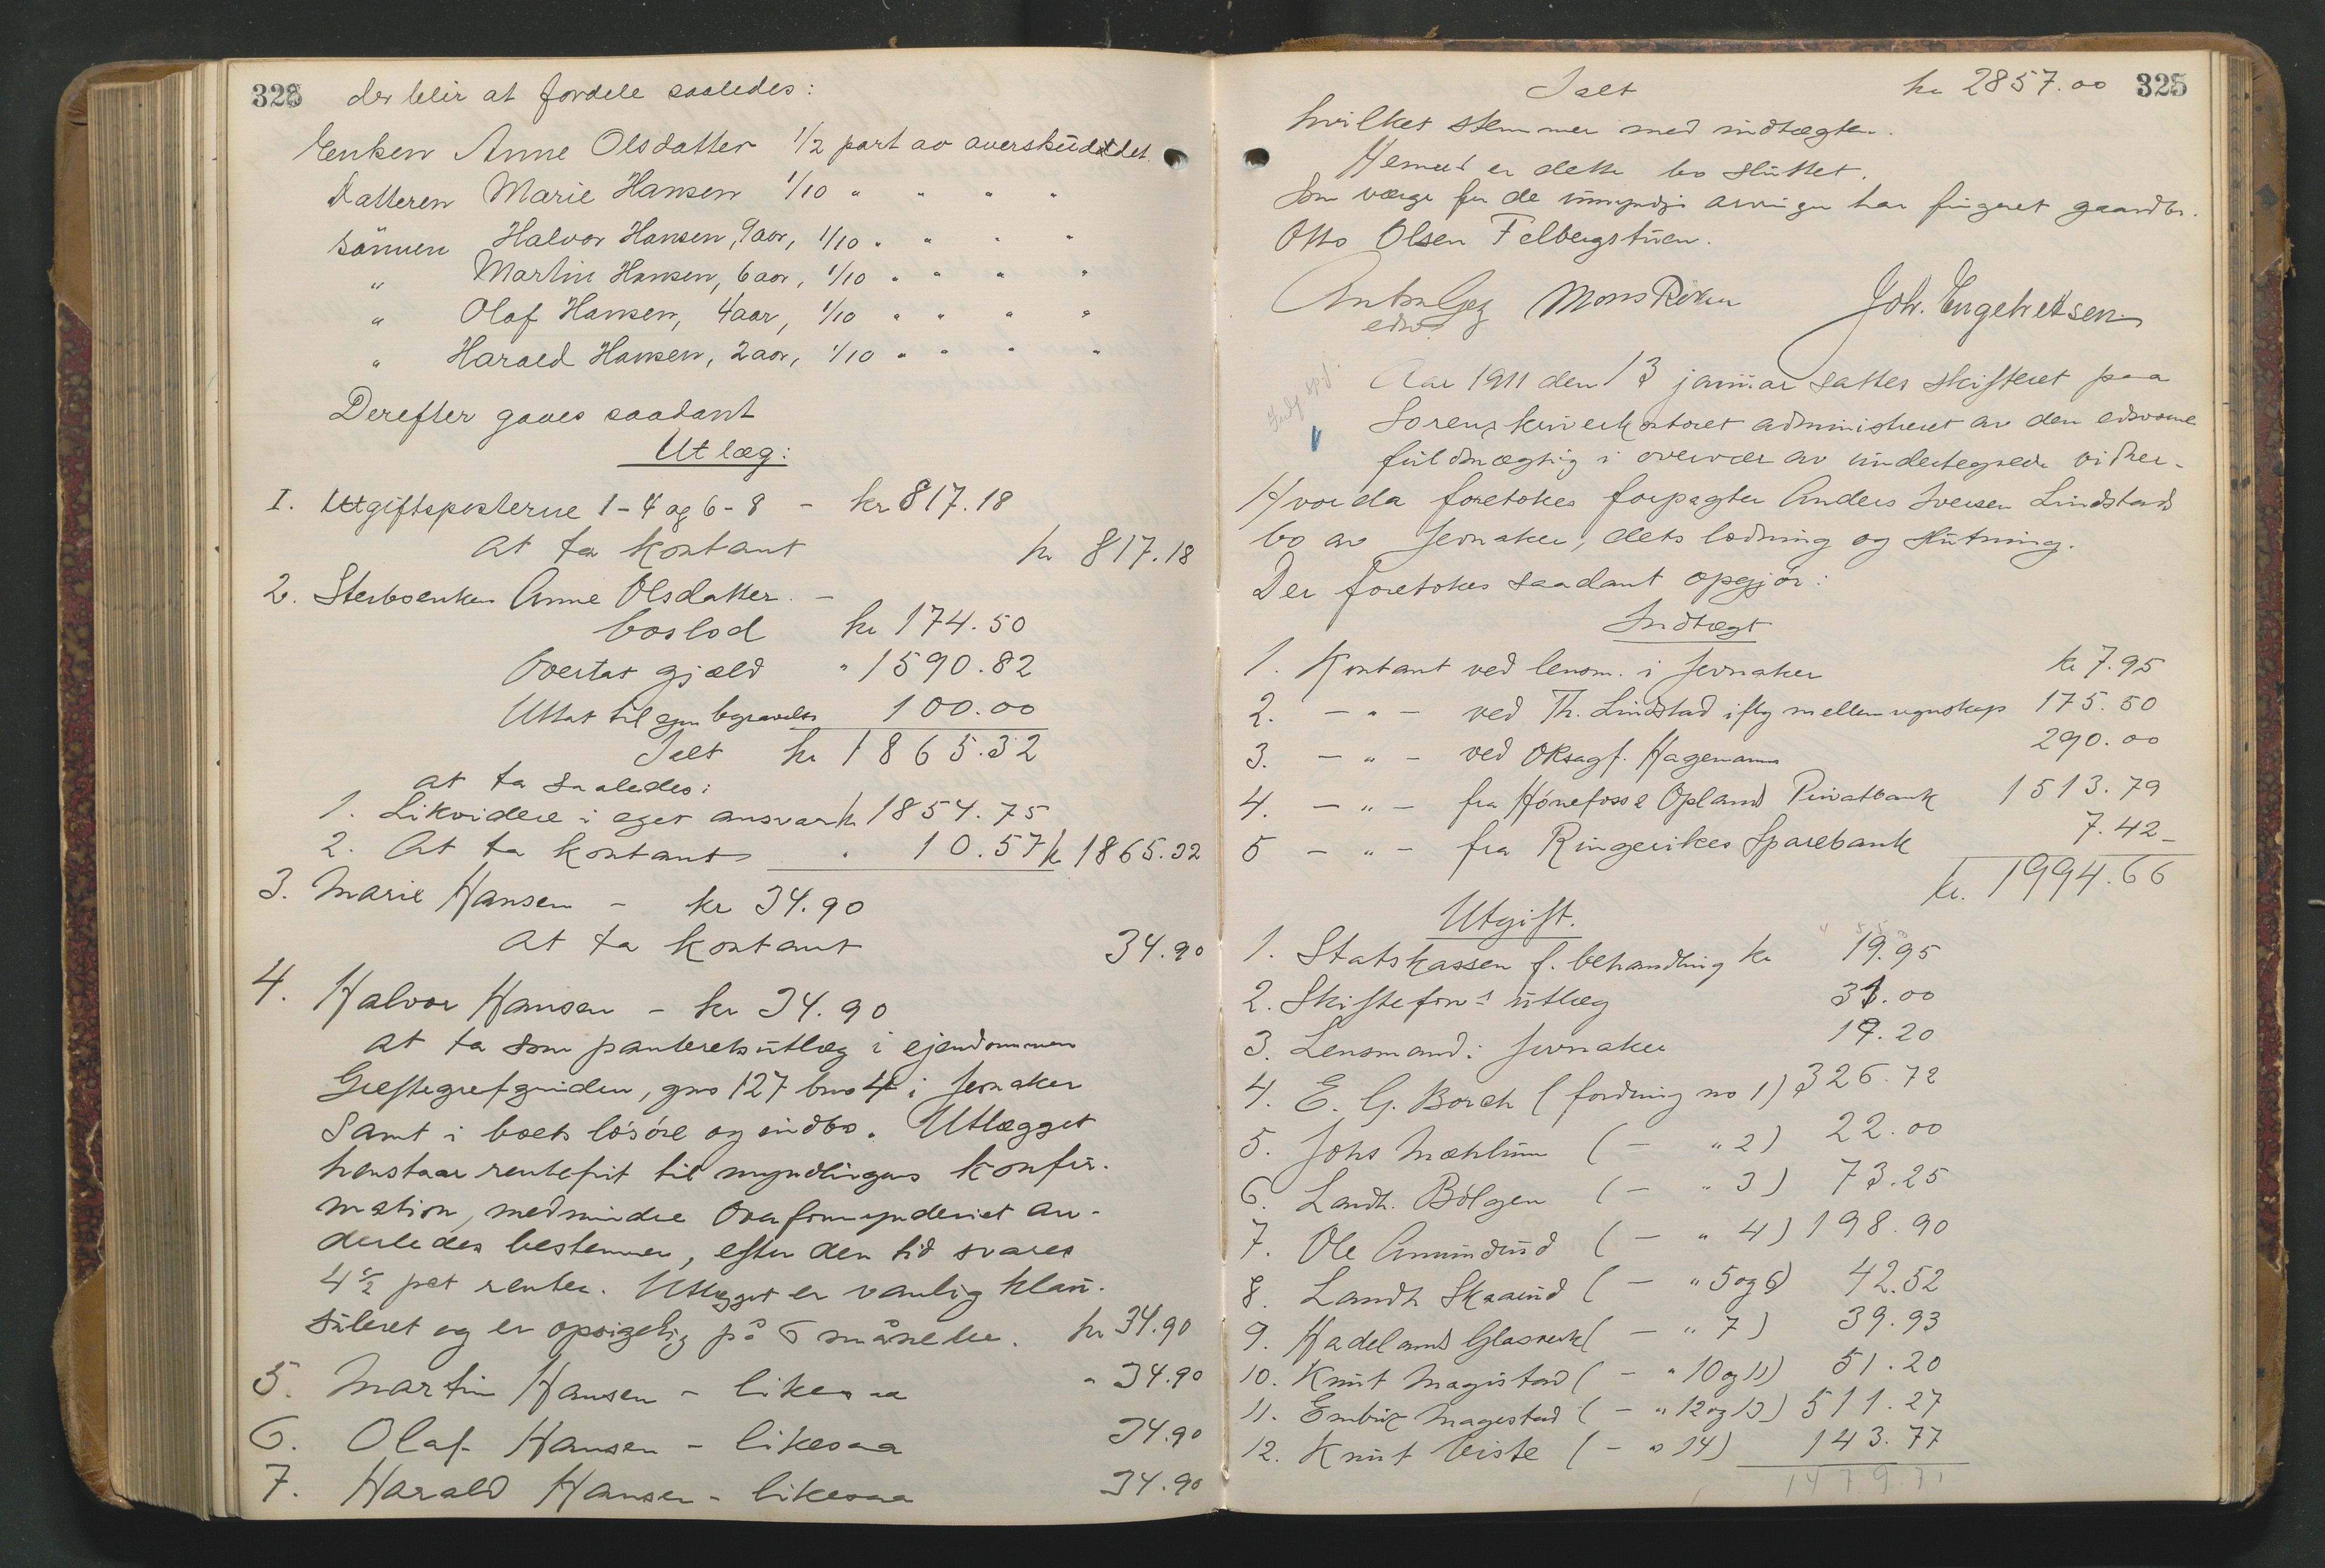 328 der blir at fordele saaledes:
Enken Anne Olsdatter 1/2 part av overskuddet.
Datteren Marie Hansen 1/10 " " " "
Sönnen Halvor Hansen, 9 aar, 1/10 " " " "
" Martin Hansen, 6 aar, 1/10 " " " "
" Olaf Hansen, 4 aar, 1/10 " " " "
" Harald Hansen, 2 aar, 1/10 " " " "
Derefter gaves saadant
Utlæg:
I. Utgiftsposterne 1-4 og 6-8 - kr 817.18
at ta kontant kr 817.18
2. Sterboenken Anne Olsdatter. -
boslod kr 174.50
Overtat gjæld " 1590.82
Uttat til egen begravelse 100.00
Ialt kr 1865.32
at ta saaledes:
1. Likvidere i eget ansvar kr 1854.75
2. At ta kontant " 10.57 kr 1865.32
3. Marie Hansen - kr 34.90
at ta kontant 34.90
4. Halvor Hansen - kr 34.90
at ta som panteretsutlæg i ejendommen
gno 127 bno 4 i Jevnaker
samt i boets lösöre og indbo. Utlægget
henstaar rentefrit til myndlingens konfir-
mation, medmindre Overformynderiet an-
derledes bestemmer, efter den tid svares
4 1/2 pct renter. Utlægget er vanlig klau-
suleret og er opsigelig på 6 måneder. kr 34.90
5. Martin Hansen - likesaa " 34.90
6. Olaf Hansen - likesaa 34.90
7. Harald Hansen - likesaa 34.90
Ialt kr 2857.00 325
hvilket stemmer med indtægten.
Hermed er dette bo sluttet.
Som værge for de umyndige arvinger har fungeret gaardbr.
Otto Olsen Felbergstuen.
Mons Röken Joh. Engebretsen
edsv.
Aar 1911 den 13 januar sattes skifteret paa
Sorenskriverkontoret administreret av den edsvorne
fuldmægtig i overvær av undertegnede vidner.
Hvorda foretokes forpagter Anders Iversen Lindstads
bo av Jevnaker, dets lodning og slutning.
Der foretokes saadant opgjör:
Indtægt
1. Kontant ved lensm. i Jevnaker kr 7.95
2. - " - ved Th. Lindstad iflg mellemregnskap 175.50
3. - " - ved Oksagf. Hagemann 290.00
4. - " - fra Hönefoss & Opland Privatbank 1513.79
5 - " - fra Ringerikes Sparebank 7.42
kr. 1994.66
Utgift.
1. Statskassen f. behandling kr 19.95
2. Skifteforv.s utlæg 31.00
3. Lensmand i Jevnaker 19.20
4. E. G. Borch (fordring no 1) 326.72
5. Johs Mæhlum ( - " 2) 22.00
6. Landh. Bölgen ( - " 3) 73.25
7. Ole Amundrud ( - " 4) 198.90
8. Landh Skaarud ( - " 5 og 6) 42.52
9. Hadelands Glasverk ( - " 7) 39.93
10. Knut Magistad ( - " 10 og 11) 51.20
11. Embrik Magistad ( - " 12 og 13) 511.27
12. Knut Viste ( - " 14) 143.77
1479.71